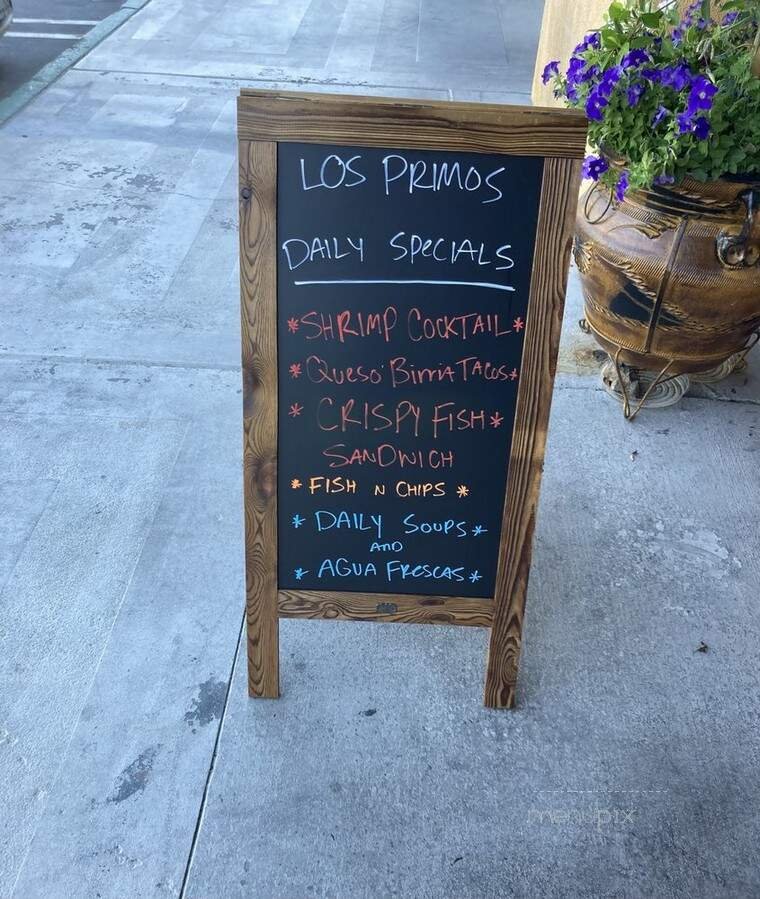 LOS PRIMOS
DAILY SPECIALS
*SHRIMP COCKTAIL*
*Queso Birria Tacos*
* CRISPY FISH*
SANDWICH
* FISH N CHIPS *
* DAILY SOUPS*
AND
* AGUA FRESCAS *
menupix